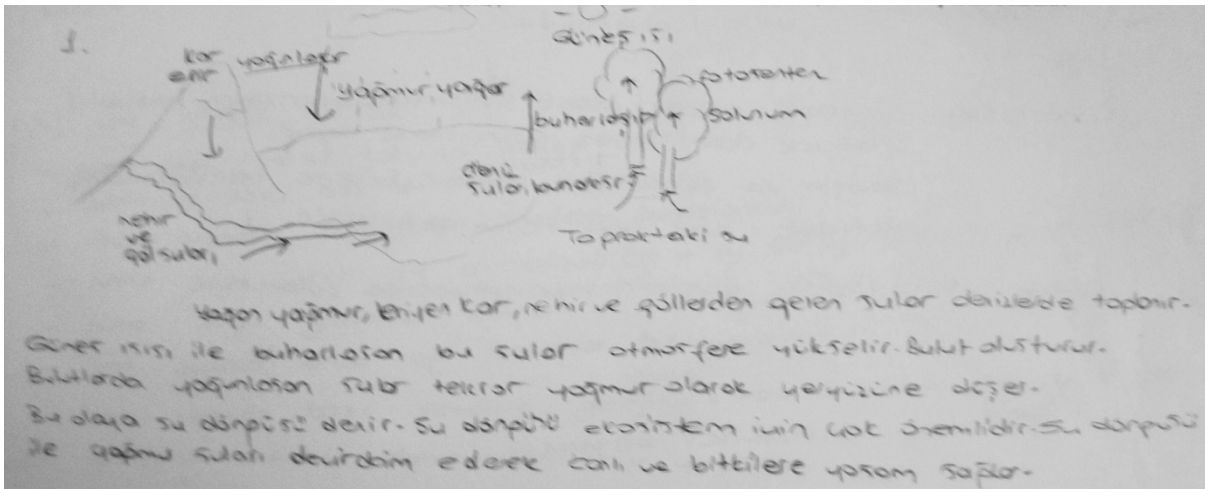 1.
Güneş ısı
kar yoğunlaşır
erir
yağmur yağar
fotosentez
buharlaşıp
solunum
deniz
suları
nehir
ve
göl suları
Topraktaki su
Yağan yağmur, eriyen kar, nehir ve göllerden gelen sular denizlerde toplanır.
Güneş ısısı ile buharlaşan bu sular atmosfere yükselir. Bulut oluşturur.
Bulutlarda yoğunlaşan sular tekrar yağmur olarak yeryüzüne düşer.
Bu olaya su döngüsü denir. Su döngüsü ekosistem için çok önemlidir. Su döngüsü
ile yağmur suları devirdaim ederek canlı ve bitkilere yaşam sağlar.